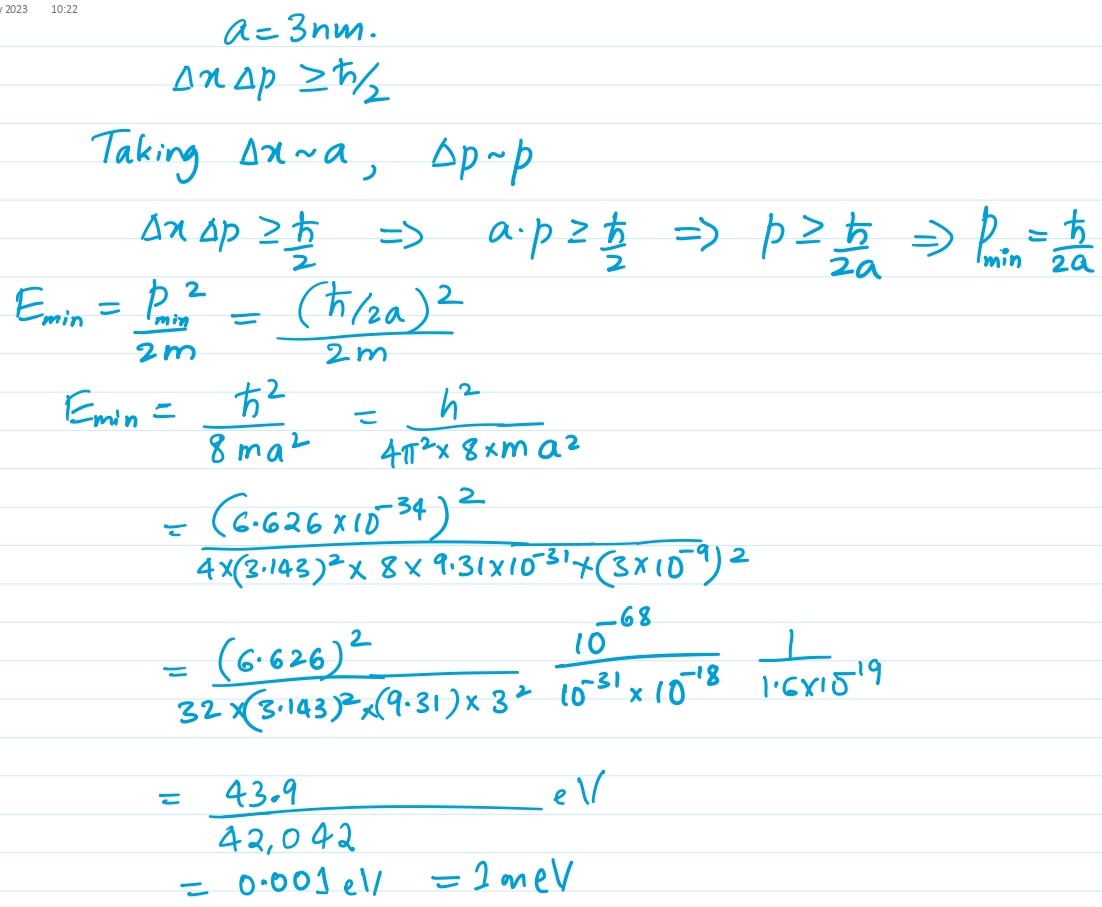 2023 10:22
a = 3nm.
Δx Δp ≥ ħ/2
Taking Δx ~ a, Δp ~ p
Δx Δp ≥ ħ/2 => a·p ≥ ħ/2 => p ≥ ħ/2a => p_min = ħ/2a
E_min = p_min²/2m = (ħ/2a)²/2m
E_min = ħ²/8ma² = h²/4π²×8×ma²
= (6.626×10⁻³⁴)²/4×(3.143)²×8×9.31×10⁻³¹×(3×10⁻⁹)²
= (6.626)²/32×(3.143)²×(9.31)×3² 10⁻⁶⁸/10⁻³¹×10⁻¹⁸ 1/1.6×10⁻¹⁹
= 43.9/42,042 eV
= 0.001 eV = 1 meV